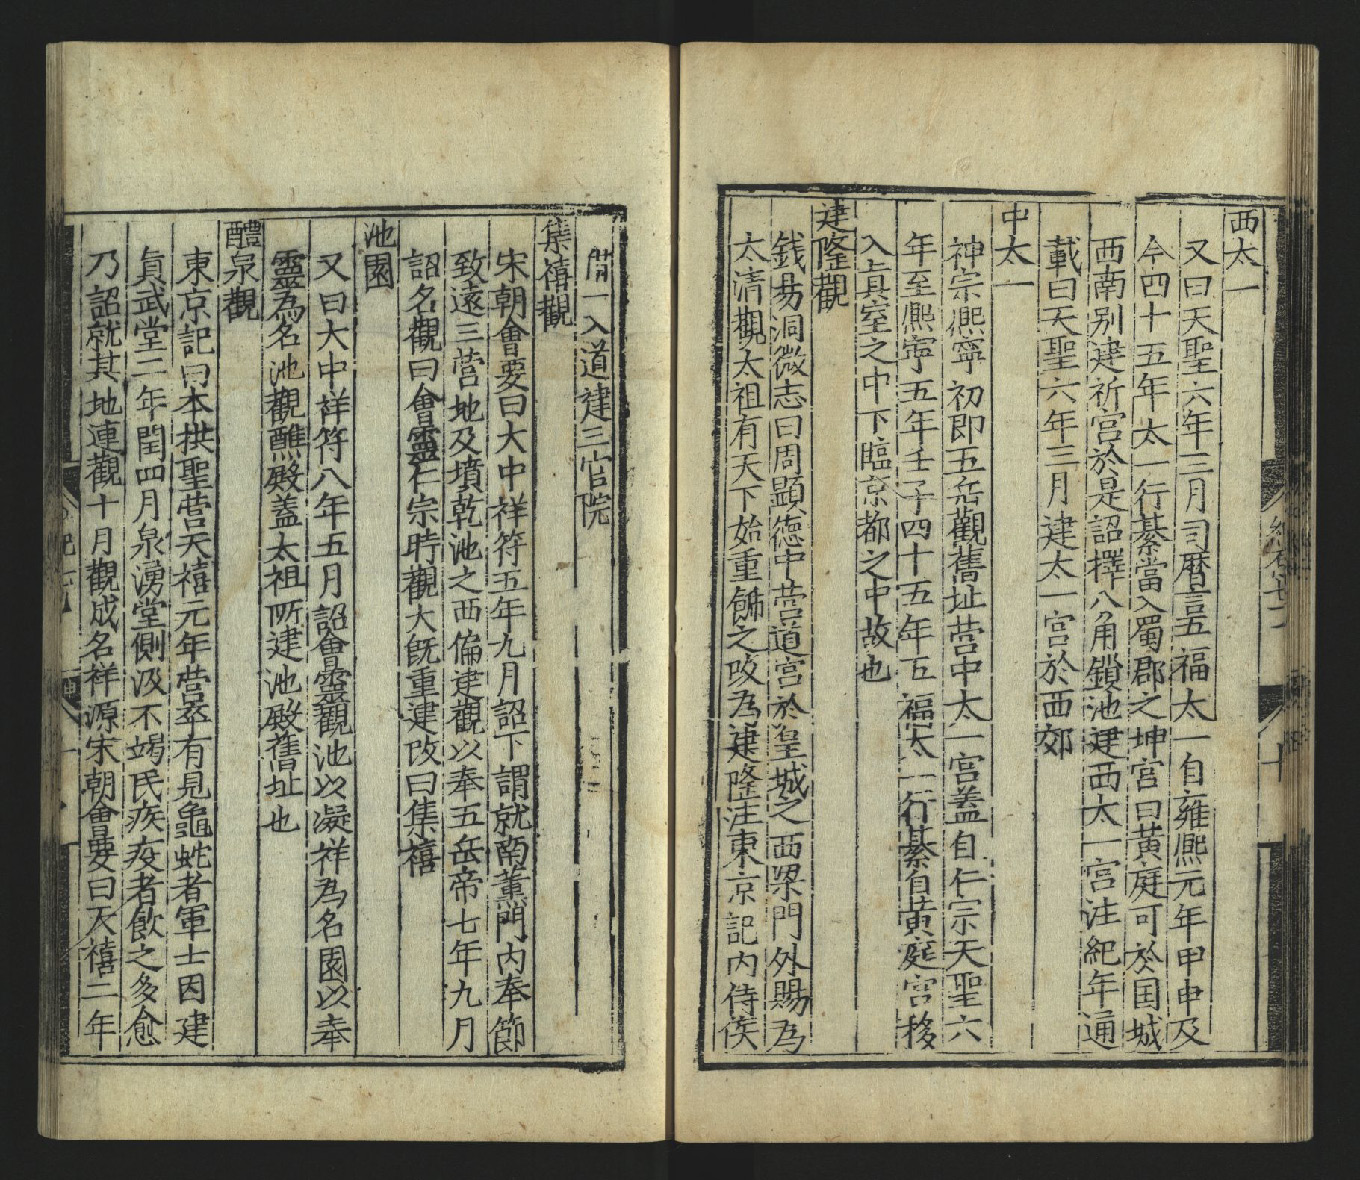 西太一
又曰天聖六年三月司曆言五福太一自雍熈元年甲申及
今四十五年太一行綦當入蜀郡之坤宮曰黃庭可於国城
西南别建祈宮於是詔擇八角鎖池建西太一宮注紀年通
載曰天聖六年三月建太一宮於西郊
中太一
神宗熈寧初即五岳觀舊址营中太一宮蓋自仁宗天聖六
年至熈寧五年壬子四十五年五福太一行綦自黃庭宮移
入真室之中下臨京都之中故也
建隆觀
錢易洞微志曰周顯德中营道宮於皇城之西梁門外賜為
太清觀太祖有天下始重餙之改為建隆注東京記内侍侯
一入道建三官院
集禧觀
宋朝會要曰大中祥符五年九月詔下謂就南薫門内奉節
致遠三营地及墳乾池之西偏建觀以奉五岳帝七年九月
詔名觀曰會靈仁宗時觀大既重建改曰集禧
池園
又曰大中祥符八年五月詔會靈觀池以凝祥為名園以奉
靈為名池觀醮殿蓋太祖所建池殿舊址也
醴泉觀
東京記曰本拱聖营天禧元年营丞有見龜蛇者軍士因建
真武堂二年閏四月泉湧堂側汲不竭民疾疫者飲之多愈
乃詔就其地連觀十月觀成名祥源宋朝會要曰天禧二年